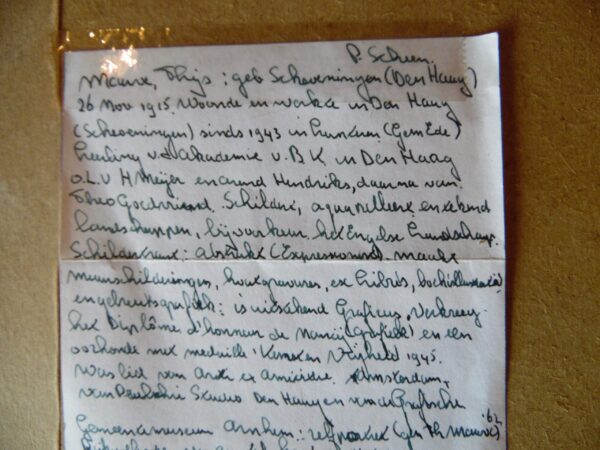 P. Scheen.
Mauve, Thijs: geb Scheveningen (Den Haag)
26 Nov 1915. Woonde en werkte in Den Haag
(Scheveningen) sinds 1943 in Lunteren (Gem Ede)
Leerling v.d. Akademie v. B K in Den Haag
o.L.v H Meijer en Arend Hendriks, daarna van
Theo Goedvriend. Schildert, aquarelleert en tekent
landschappen, bij voorkeur het Engelse Landschap.
Schilderkunst: abstrakt (Expressionist). maakt
muurschilderingen, houtgravures, ex libris, boekillustratie
en gebruiksgrafiek: is uitstekend Graficus. Verkreeg
het Diplôme d'honneur de Nancy (grafiek) en een
oorkonde met medaille 1945.
Was lid van Arti et Amicitiae Amsterdam,
van Pulchri Studio Den Haag en van de Grafische
'62
Gemeentemuseum Arnhem: zelfportret (gen Th Mauve)